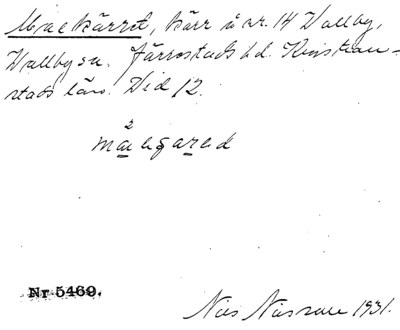 Maekärret, kärr å nr. 14 Vallby,
Vallby sn. Järrestads hd. Kristian-
stads län. Vid 12.
Nr 5469.
Nils Nilsson 1931.